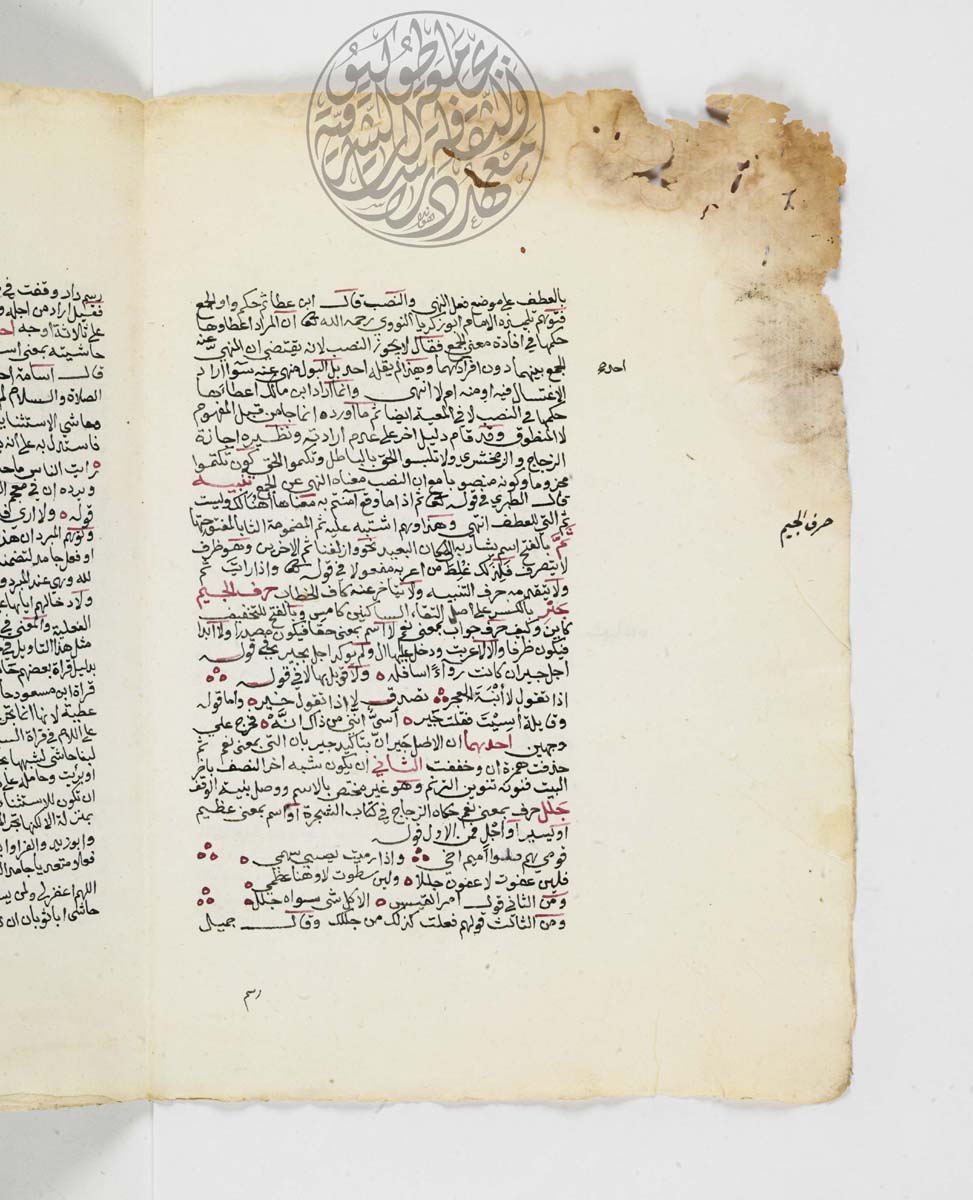 بالعطف على موضع فعل النهي والنصب قال ابن عطا ثم حكم واو الجمع
فتوهم تلميذه الامام ابو زكريا النووي رحمه الله تعالى ان المراد اعطاوها
حكمها في افادة معنى الجمع فقال لا يجوز النصب لانه يقتضي ان المنهي عنه
الجمع بينهما دون افرادهما وهذا لم يقله احد بل البول منهي عنه سوا اراد
الاغتسال فيه او منه ام لا انتهى وانما اراد ابن مالك اعطاءها
حكمها في النصب لا في المعية ايضا ثم ما اورده انما جا من قبل المفهوم
لا المنطوق وقد قام دليل اخر على عدم ارادته ونظيره اجازة
الزجاج والزمخشري ولا تلبسوا الحق بالباطل وتكتموا الحق كون تكتموا
مجزوما وكونه منصوبا مع ان النصب معناه النهي عن الجمع تنبيه
قال الطبري في قوله تعالى اثم اذا ما وقع امنتم به معناه اهنالك وليست
ثم التي للعطف انتهى وهذا وهم اشتبه عليه ثم المضمومة الثا بالمفتوحتها
ثم بالفتح اسم يشار به الى المكان البعيد نحو وازلفنا ثم الاخرين وهو ظرف
لا يتصرف فلذلك غلط من اعربه مفعولا في قوله تعالى واذا رايت ثم
ولا يتقدمه حرف التنبيه ولا يتاخر عنه كاف الخطاب حرف الجيم
جير بالكسر على اصل التقاء الساكنين كامس وبالفتح للتخفيف
كاين وكيف حرف جواب بمعنى نعم لا اسم بمعنى حقا فيكون مصدرا ولا ابدا
فيكون ظرفا والا لاعربت ودخل عليها ال ولم توكد اجل بجير في قوله
اجل جير ان كانت رواء اسافله ولا قوبل بها لا في قوله
اذا تقول لا ابنة العجير تصدق لا اذا تقول جير واما قوله
وقايلة اسيت فقلت جير اسي انني من ذاك انه فخرج على
وجهين احدهما ان الاصل جير ان بتاكيد جير بان التي بمعنى نعم ثم
حذفت همزة ان وخففت الثاني ان يكون شبه اخر النصف باخر
البيت فنونه تنوين الترنم وهو غير مختص بالاسم ووصل بنية الوقف
جلل حرف بمعنى نعم حكاه الزجاج في كتاب الشجرة او اسم بمعنى عظيم
او يسير او اجل فمن الاول قوله
قومي هم قتلوا اميم اخي واذا رميت يصيبني سهمي
فلين عفوت لاعفون جللا ولين سطوت لاوهنا عظمي
ومن الثاني قول امرؤ القيس الا كل شي سواه جلل
ومن الثالث قولهم فعلت كذلك من جللك وقال جميل
رسم
احدهـ
حرف الجيم
رسم دار وقفت في
فقيل اراد من اجله و
على ثلاثة اوجه احد
حاشيته بمعنى است
قال اسامة اح
الصلاة والسلام لم
وحاشى الاستثنا
فاستدل به على انه
رايت الناس ما حا
ويرده ان في معجم ال
قوله ولا ارى فا
وتوهم المبرد ان هذ
او فعل جامد لتضمنه
لله وهي عند المبرد و
ولادخالهم اياها على
الفعلية والمعنى في
مثل هذا التاويل في
بدليل قراة بعضهم حا
قراة ابن مسعود حا
عطية لانها انما تجر
على اللام في قراة الس
لبنا حاشى لشبهها بح
او بريت وحامله على
ان تكون للاستثنا
بمنزلة الا لكنها تجر ال
وابو زيد والفرا وا
فعلا متعديا جامدا ل
اللهم اغفر لي ولمن يس
حاشى ابا ثوبان ان